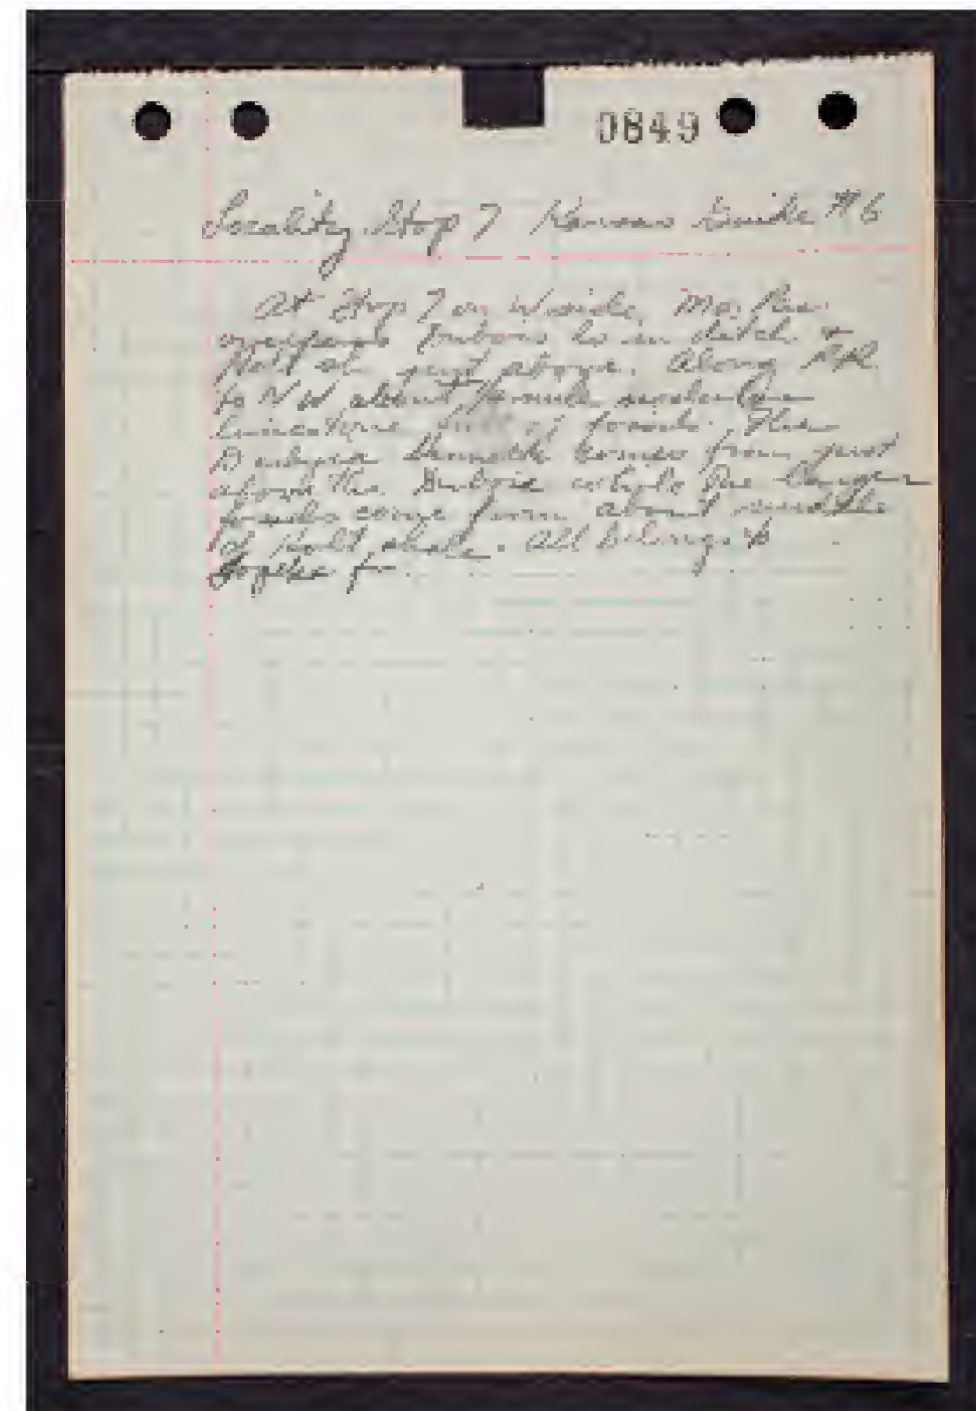 0849
Locality Stop 7 Kansas Guide #6
At Stop 7 on W side, Mo. Pac.
overpass Dubois ls in ditch &
Holt sh. just above. Along RR.
to NW about mile
limestone full of fossils. The
comes from just
above the Dubois while the larger
fossils come from about middle
of Holt shale. All belongs to
Topeka fm.